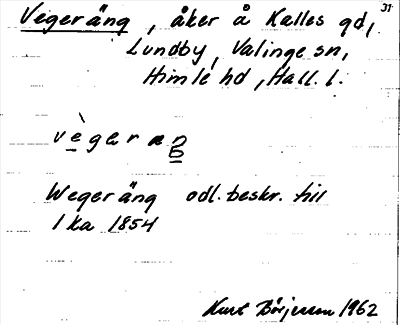 31
Vegeräng, åker å Kalles gd,
Lundby, Valinge sn,
Himle hd, Hall. l.
Wegeräng odl. beskr. till
l ka 1854
Kurt Börjesson 1962